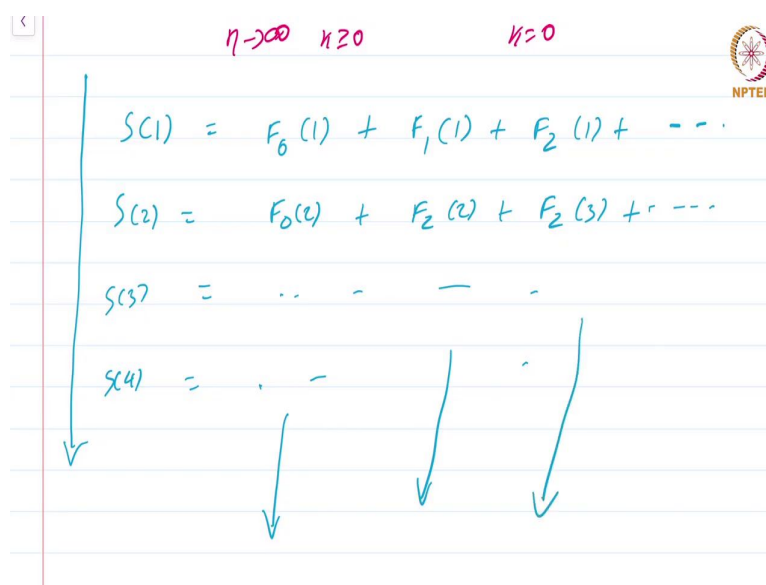 n→∞ k≥0 k=0
NPTEL
S(1) = F₀(1) + F₁(1) + F₂(1) + ----
S(2) = F₀(2) + F₂(2) + F₂(3) + ----
S(3) = .. - — -
S(4) = . - .